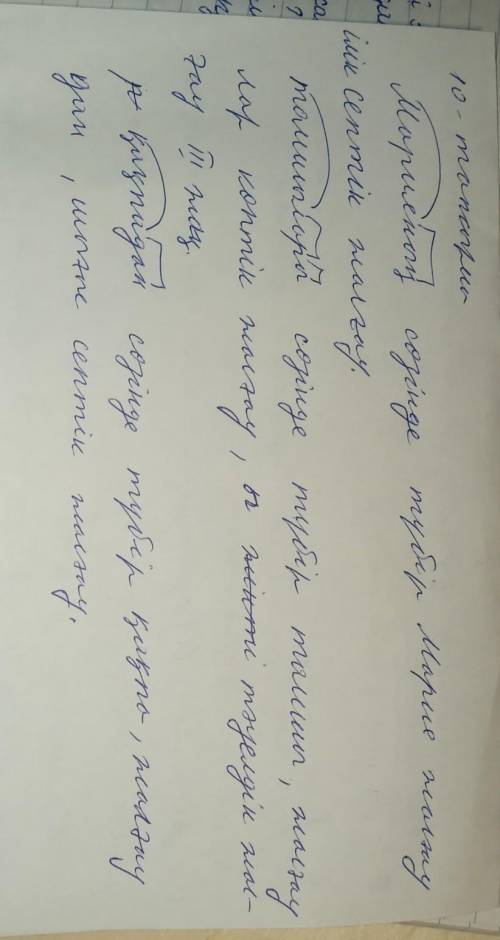 10-тапсырма
Марияның сөзінде түбір Мария жалғау
ілік септік жалғау.
тамшылары сөзінде түбір тамшы, жалғау
лар көптік жалғау, ы тәуелдік жал-
ғау III жақ.
сөзінде түбір қақпа, жалғау
дан, шығыс септік жалғау.